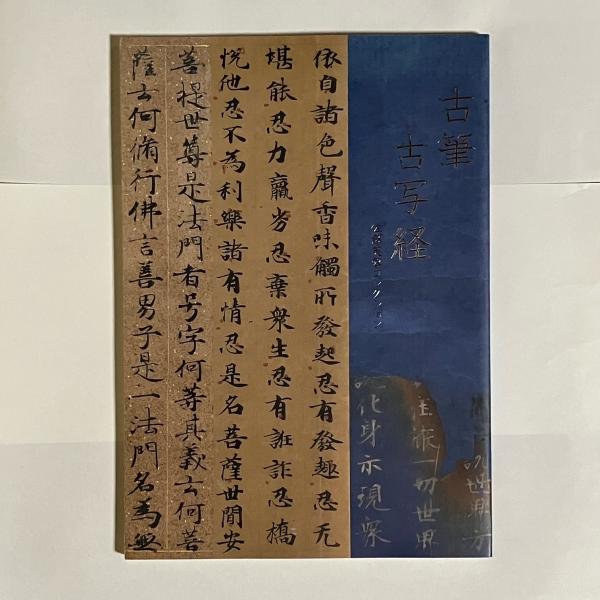 古筆
古写経
コレクション
一切世界
化身示現衆
依自諸色聲香味觸所發起忍有發趣忍无
堪能忍力羸劣忍棄衆生忍有誑詐忍憍
悦他忍不為利樂諸有情忍是名菩薩世間安
菩提世尊是法門者号字何等其義云何菩
薩云何脩行佛言善男子是一法門名為無